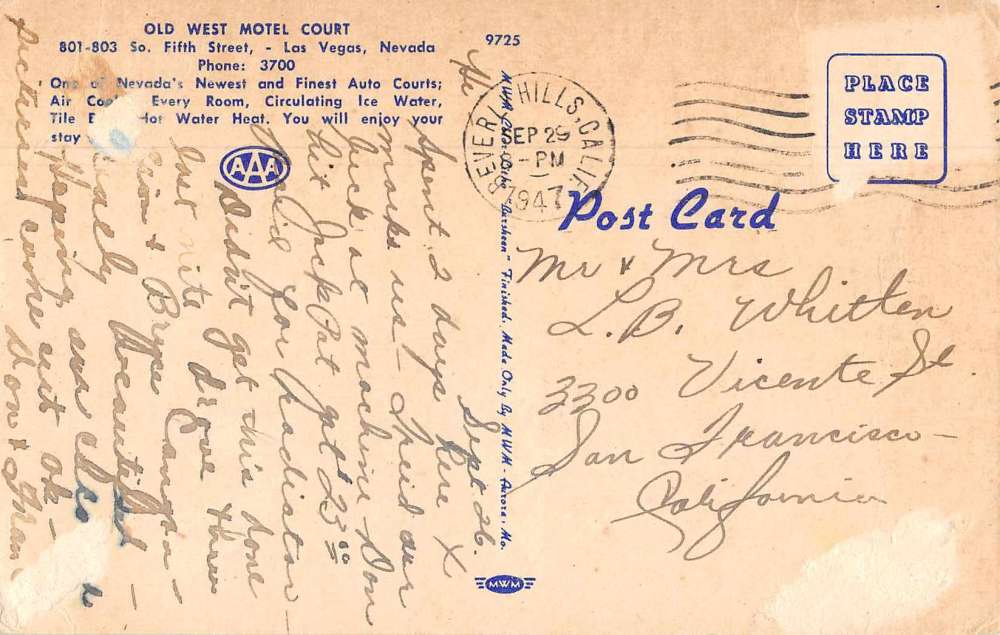 OLD WEST MOTEL COURT
801-803 So. Fifth Street, - Las Vegas, Nevada
Phone: 3700
One of Nevada's Newest and Finest Auto Courts;
Air Every Room, Circulating Ice Water,
Tile Hot Water Heat. You will enjoy your
stay
AAA
9725
BEVERLY HILLS, CALIF
SEP 29
-PM
1947
PLACE
STAMP
HERE
Post Card
MWM "Darsheen" Finished. Made Only By MWM - Aurora, Mo.
MWM
Sept. 26.
Spent 2 days here &
marks us - Tried our
luck at machine Don
hit JackPot got 25.00
for radiator -
Didn't get this done
last nite drove thru
Zion & Bryce Canyon -
really beautiful -
hoping our
pictures come out ok -
Don &
Mr & Mrs
L.B. Whitten
3300 Vicente St.
San Francisco -
California